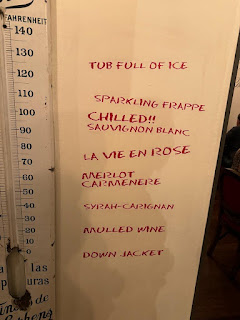 FAHRENHEIT
140
130
120
110
100
90
80
70
60
50
40
30
20
10
0
TUB FULL OF ICE
SPARKLING FRAPPE
CHILLED!!
SAUVIGNON BLANC
LA VIE EN ROSE
MERLOT
CARMENERE
SYRAH-CARIGNAN
MULLED WINE
DOWN JACKET
las